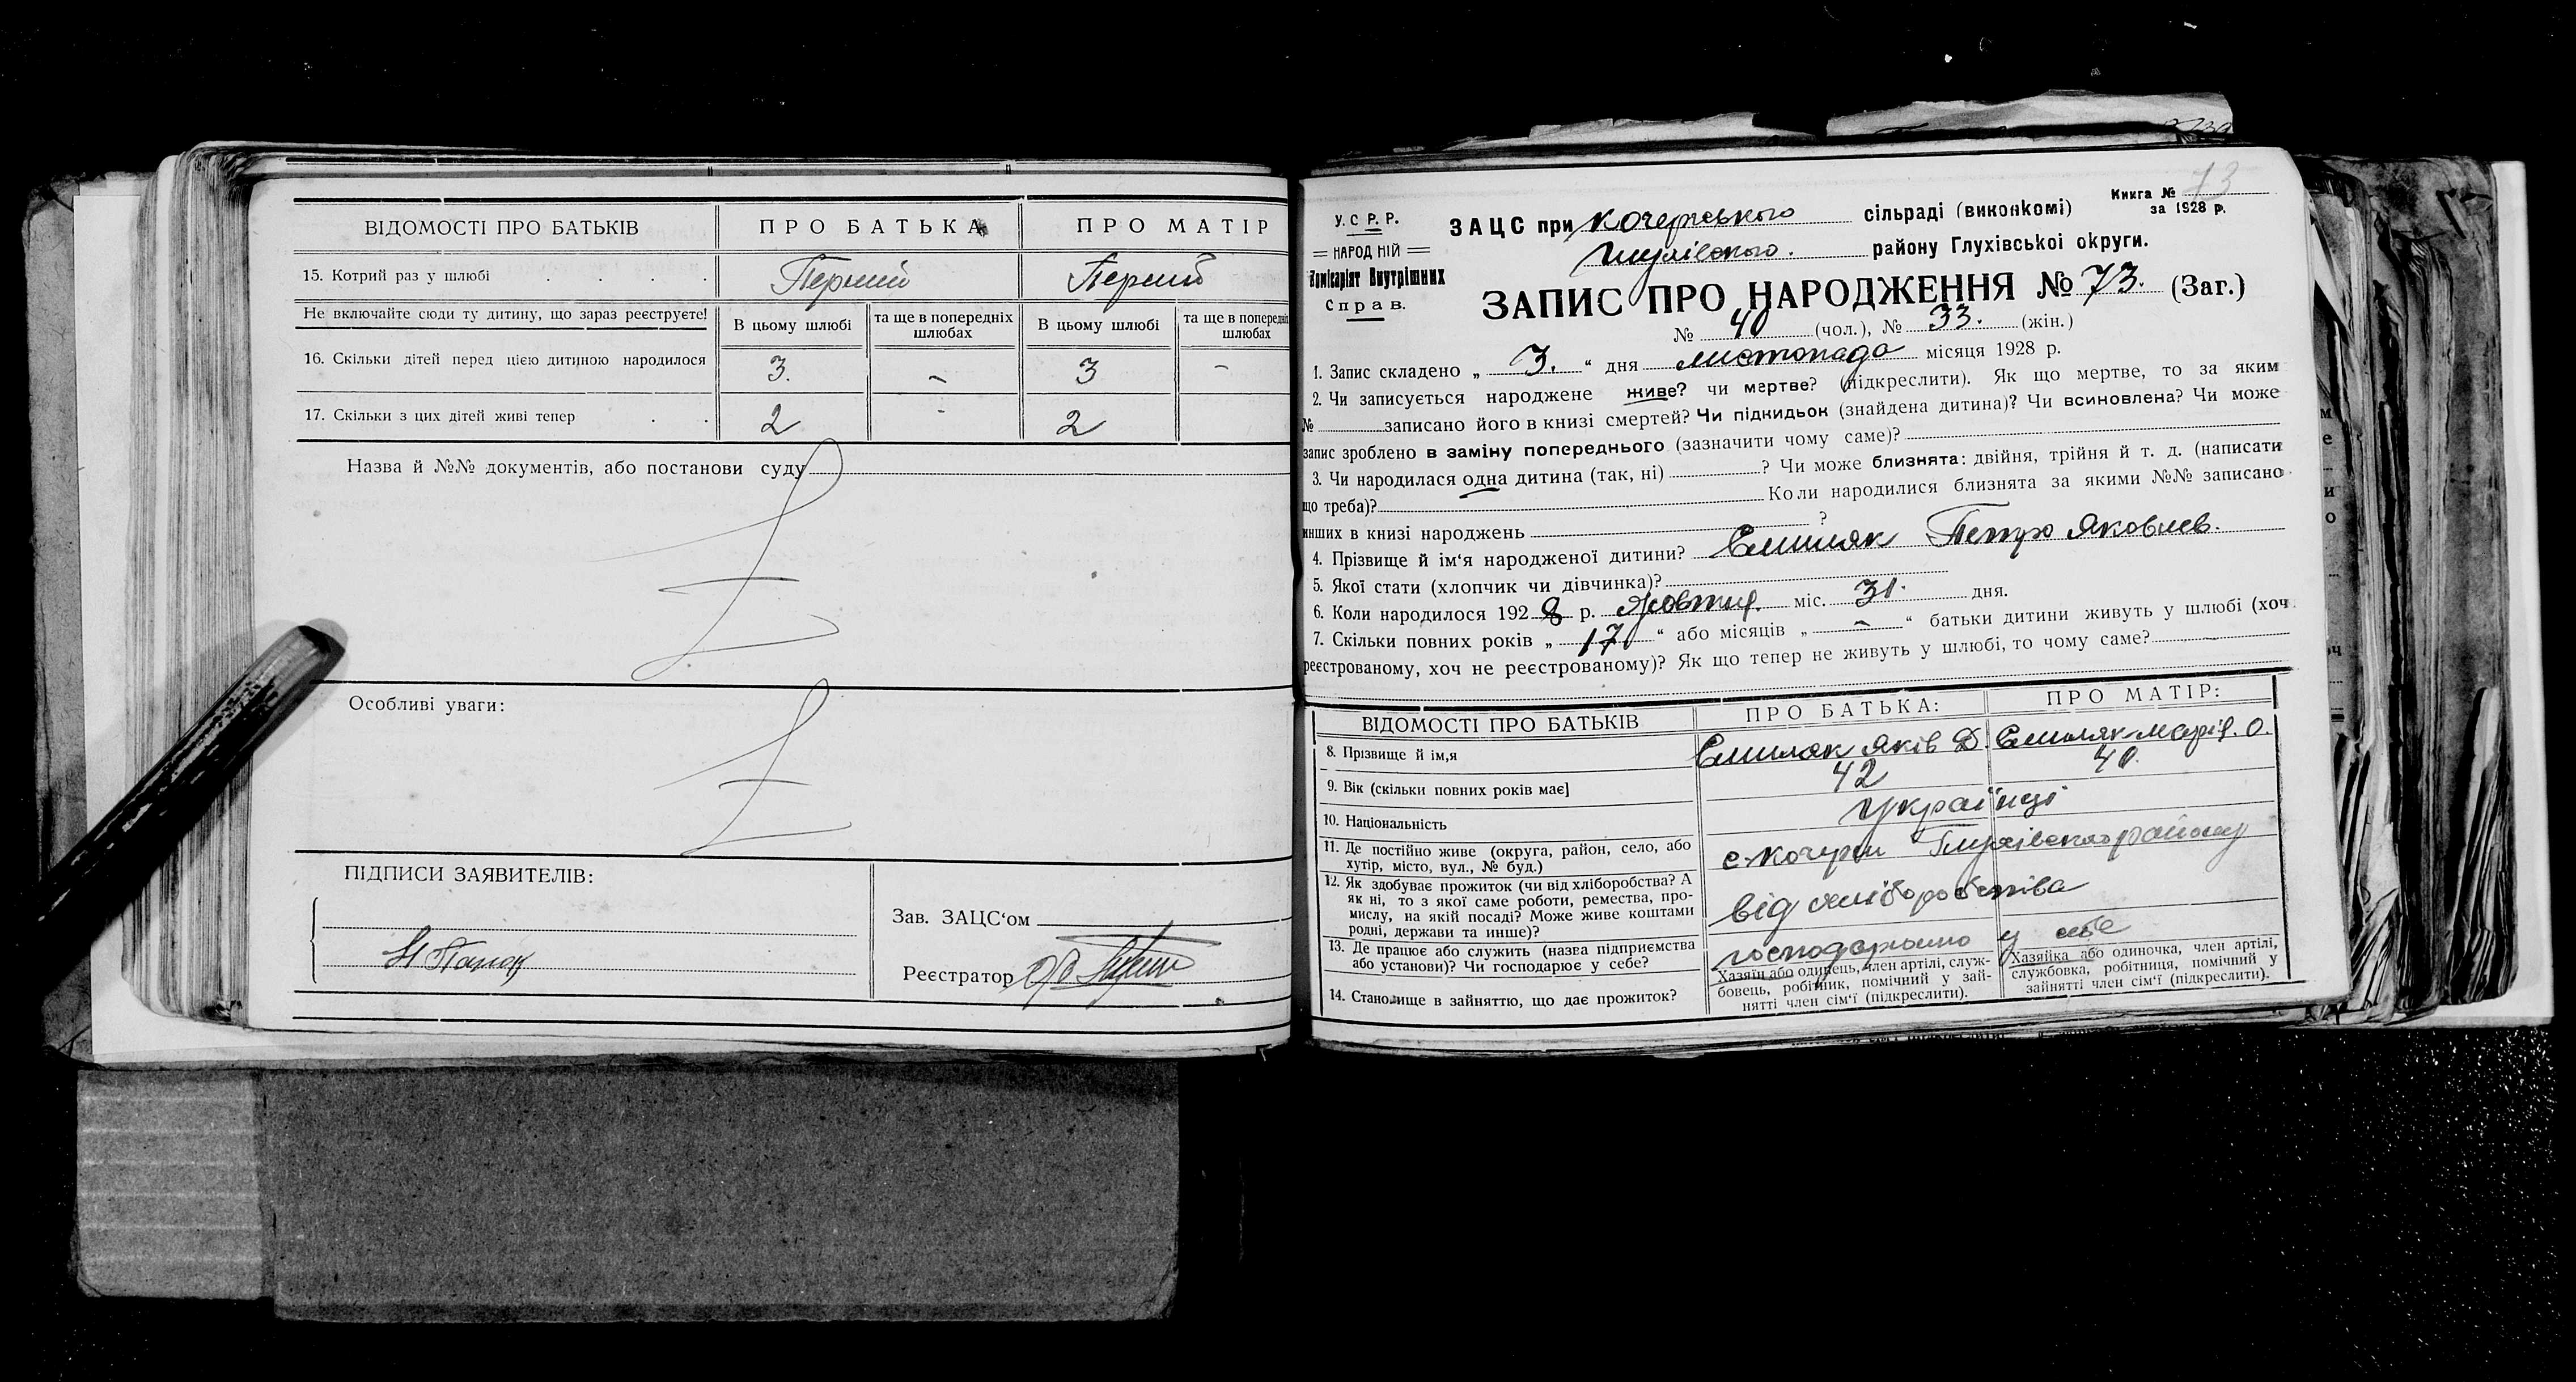 ВІДОМОСТІ ПРО БАТЬКІВ
ПРО БАТЬКА
ПРО МАТІР
15. Котрий раз у шлюбі
Перший
Перший
Не включайте сюди ту дитину, що зараз реєструєте!
В цьому шлюбі
та ще в попередніх шлюбах
В цьому шлюбі
та ще в попередніх шлюбах
16. Скільки дітей перед цією дитиною народилося
3.
–
3
–
17. Скільки з цих дітей живі тепер
2
-
2
Назва й №№ документів, або постанови суду
Особливі уваги:
ПІДПИСИ ЗАЯВИТЕЛІВ:
Зав. ЗАЦС‘ом
Реєстратор
Книга № 73
за 1928 р.
У.С.Р.Р.
НАРОДНІЙ
Комісаріят Внутрішніх
Справ.
ЗАЦС при Кочерзького сільраді (виконкомі)
Глухівського. району Глухівської округи.
ЗАПИС ПРО НАРОДЖЕННЯ № 73. (Заг.)
№ 40 (чол.), № 33. (жін.)
1. Запис складено „ 3. “ дня листопада місяця 1928 р.
2. Чи записується народжене живе? чи мертве? (підкреслити). Як що мертве, то за яким
№ записано його в книзі смертей? Чи підкидьок (знайдена дитина)? Чи всиновлена? Чи може
запис зроблено в заміну попереднього (зазначити чому саме)?
3. Чи народилася одна дитина (так, ні) ? Чи може близнята: двійня, трійня й т. д. (написати
що треба)? Коли народилися близнята за якими №№ записано
инших в книзі народжень ?
4. Прізвище й ім‘я народженої дитини? Емиляк Петро Яковлев.
5. Якої стати (хлопчик чи дівчинка)?
6. Коли народилося 1928 р. Жовтня. міс. 31. дня.
7. Скільки повних років „ 17 “ або місяців „ – “ батьки дитини живуть у шлюбі (хоч
реєстрованому, хоч не реєстрованому)? Як що тепер не живуть у шлюбі, то чому саме?
ВІДОМОСТІ ПРО БАТЬКІВ
ПРО БАТЬКА:
ПРО МАТІР:
8. Прізвище й ім,я
Емиляк Яків Д.
Емиляк Марія. О.
9. Вік (скільки повних років має]
42
40.
10. Національність
Українці
11. Де постійно живе (округа, район, село, або
хутір, місто, вул., № буд.)
с. Кочерги Глухівського району
12. Як здобуває прожиток (чи від хліборобства? А
як ні, то з якої саме роботи, ремества, про-
мислу, на якій посаді? Може живе коштами
родні, держави та инше)?
від хліборобства
13. Де працює або служить (назва підприємства
або установи)? Чи господарює у себе?
господарюємо у себе
14. Становище в зайняттю, що дає прожиток?
Хазяїн або одинець, член артілі, служ-
бовець, робітник, помічний у зай-
нятті член сім‘ї (підкреслити).
Хазяйка або одиночка, член артілі,
службовка, робітниця, помічний у
зайнятті член сім‘ї (підкреслити).